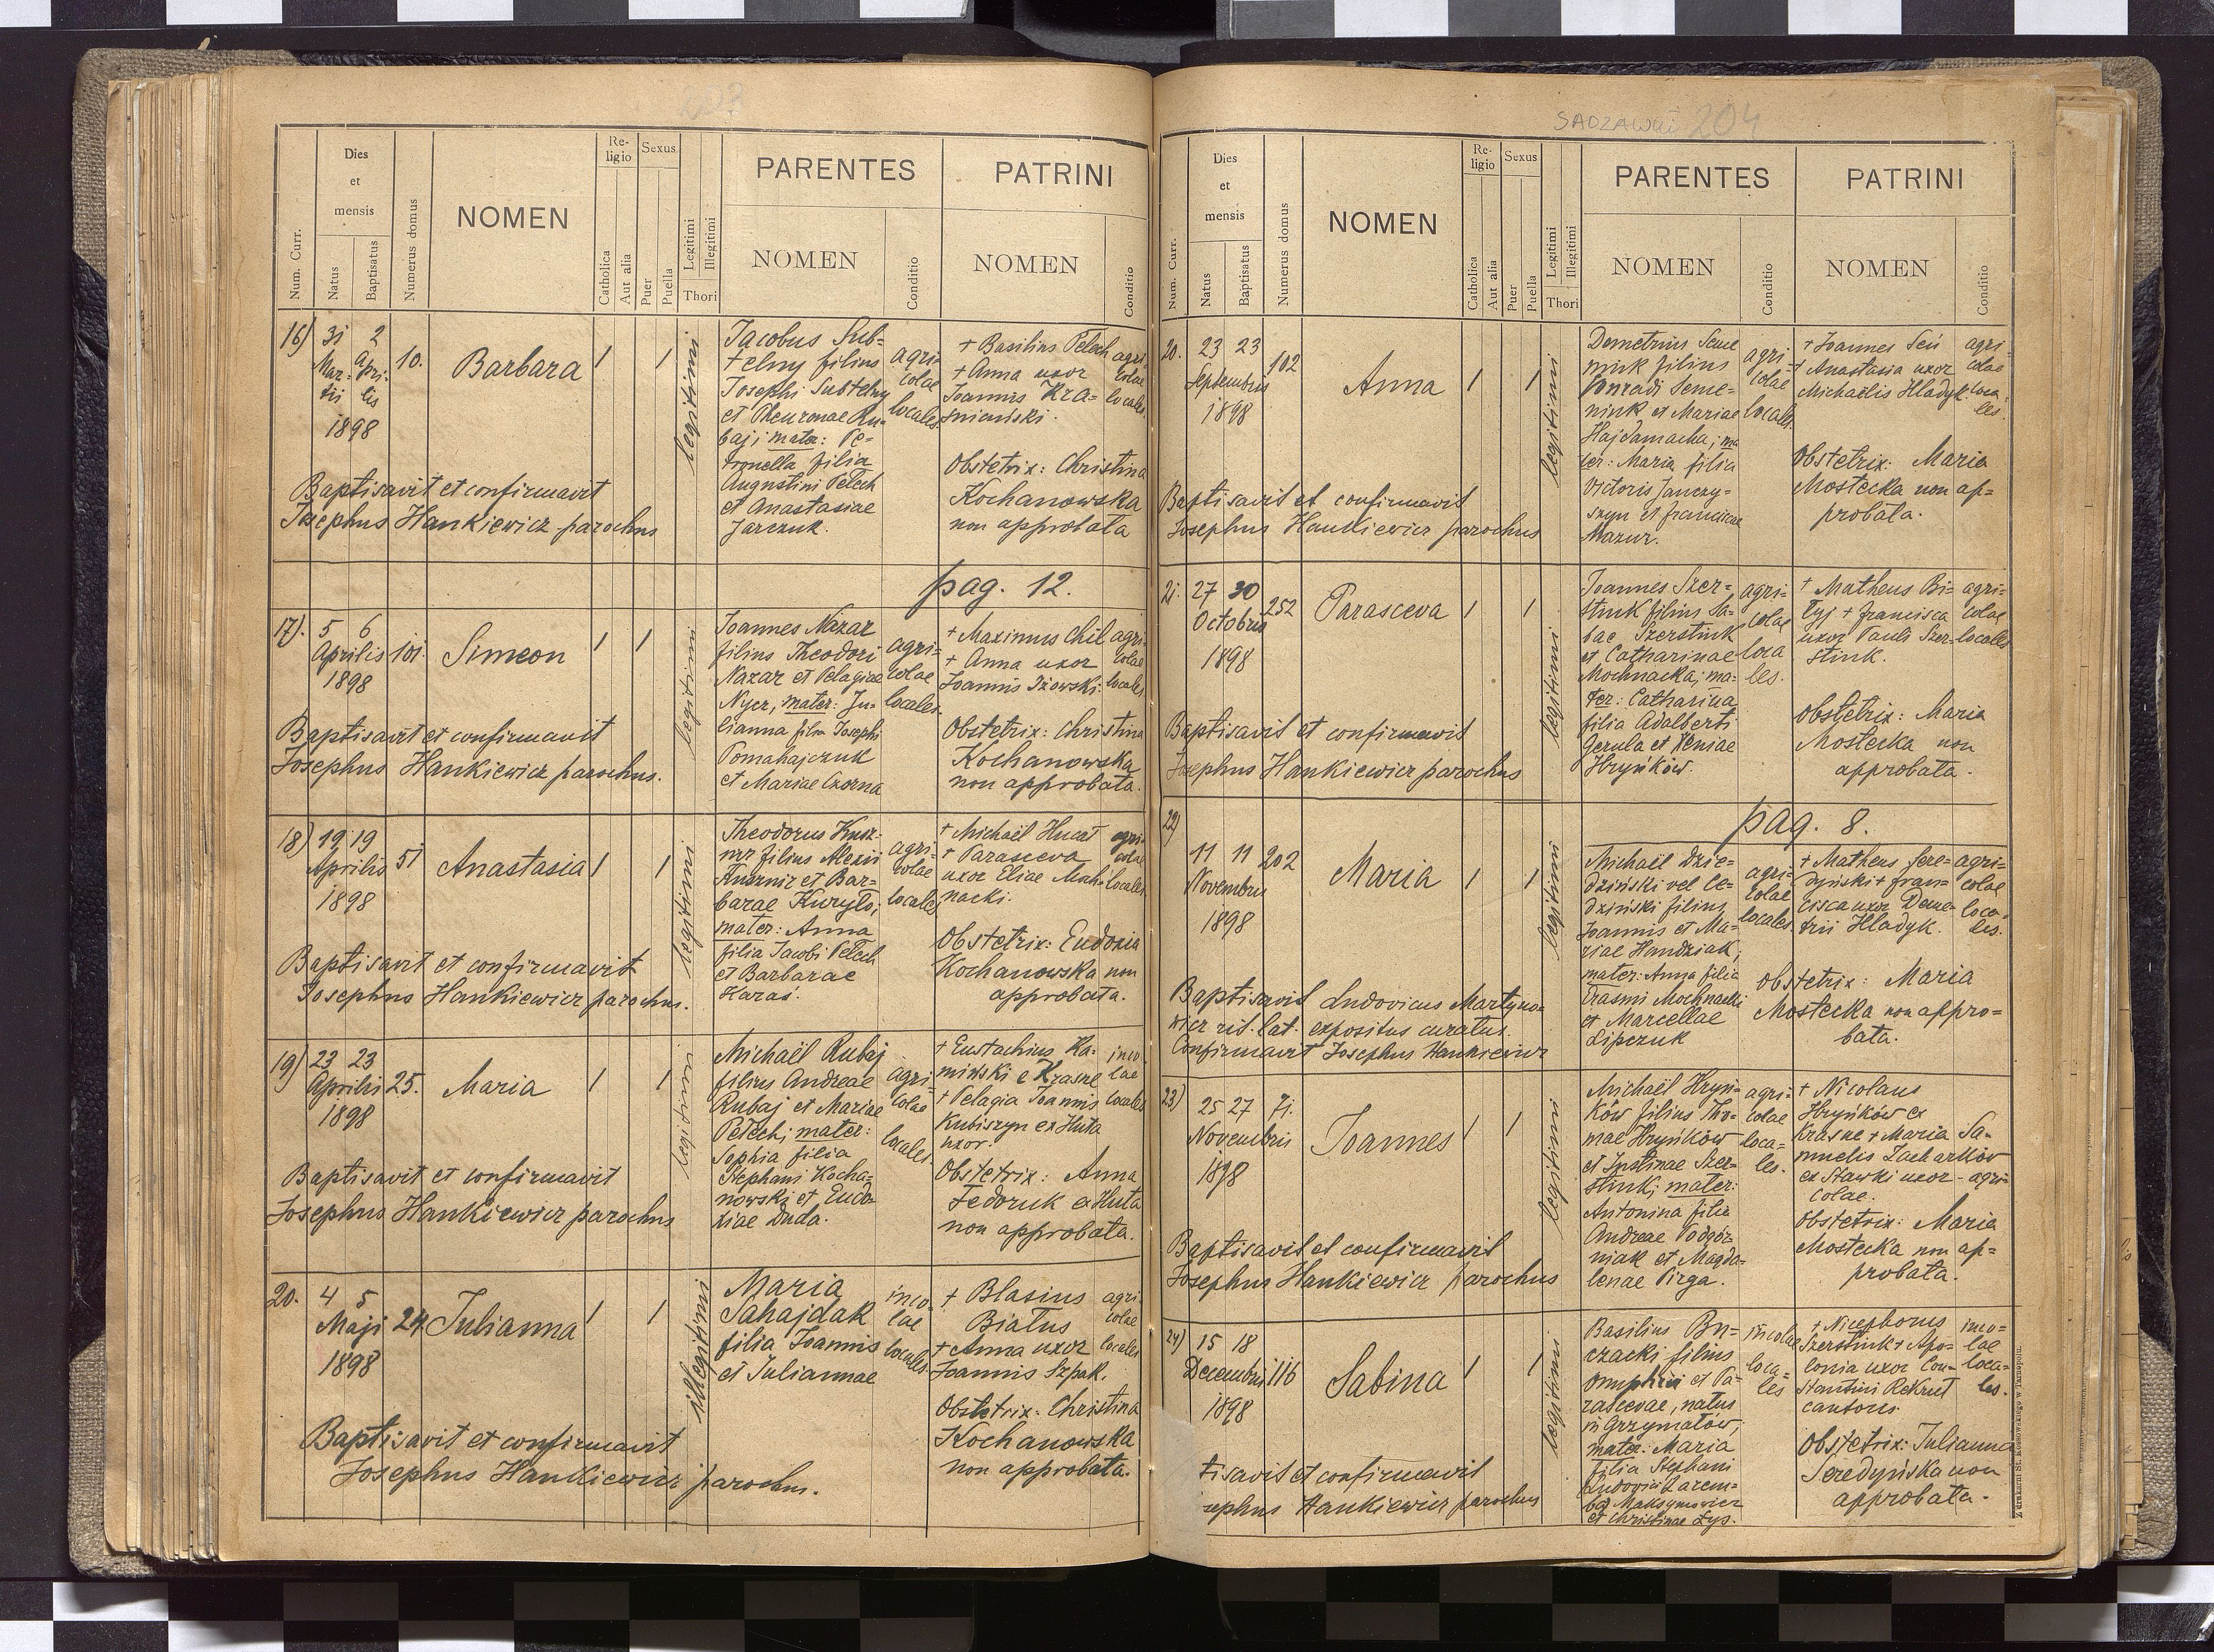 203
Num. Curr.
Dies et mensis
Natus
Baptisatus
Numerus domus
NOMEN
Religio
Catholica
Aut alia
Sexus
Puer
Puella
Legitimi
Illegitimi
Thori
PARENTES
NOMEN
Conditio
PATRINI
NOMEN
Conditio
16)
31 2
Mar- Apri-
tii lis
1898
10.
Barbara
1
1
legitimi
Jacobus Sub-
telny filius
Josephi Subtelny
et Pheuronae Ru-
baj; mater: Pe-
tronella filia
Augustini Pełech
et Anastasiae
Jarczuk.
agri-
colae
locales.
+ Basilius Pełech
+ Anna uxor
Joannis Kra-
sniowski.
agri-
colae
locales.
Obstetrix: Christina
Kochanowska
non approbata
Baptisavit et confirmavit
Josephus Hankiewicz parochus
pag. 12.
17).
5 6
Aprilis
1898
101.
Simeon
1
1
legitimi
Joannes Nazar
filius Theodori
Nazar et Pelagiae
Nycz, mater: Ju-
lianna filia Josephi
Pomahajczuk
et Mariae Czorna
agri-
colae
locales.
+ Maximus Chil
+ Anna uxor
Joannis Iżowski.
agri-
colae
locales
Obstetrix: Christina
Kochanowska
non approbata.
Baptisavit et confirmavit
Josephus Hankiewicz parochus.
18)
19 19
Aprilis
1898
51
Anastasia
1
1
legitimi
Theodorus Kusz-
nir filius Alexii
Kusznir et Bar-
barae Kuryło;
mater: Anna
filia Jacobi Pełech
et Barbarae
Karaś.
agri-
colae
locales
+ Michaël Hucał
+ Parasceva
uxor Eliae Moch-
nacki.
agri-
colae
locales
Obstetrix: Eudoxia
Kochanowska non
approbata.
Baptisavit et confirmavit
Josephus Hankiewicz parochus.
19)
23 23
Aprilis
1898
25.
Maria
1
1
legitimi
Michaël Rubaj
filius Andreae
Rubaj et Mariae
Pełech; mater:
Sophia filia
Stephani Kocha-
nowski et Eudo-
xiae Duda.
agri-
colae
locales.
+ Eustachius Ka-
miński e Krasne
+ Pelagia Joannis
Kubiszyn ex Huta
uxor.
inco-
lae
locales
Obstetrix: Anna
Fedoruk ex Huta
non approbata.
Baptisavit et confirmavit
Josephus Hankiewicz parochus
20.
4 5
Maji
1898
24.
Julianna
1
1
illegitimi
Maria
Sahajdak
filia Joannis
et Juliannae
inco-
lae
locales.
+ Blasius
Białus
+ Anna uxor
Joannis Szpak.
agri-
colae
locales
Obstetrix: Christina
Kochanowska
non approbata.
Baptisavit et confirmavit
Josephus Hankiewicz parochus.
SADZAWKI 204
Num. Curr.
Dies et mensis
Natus
Baptisatus
Numerus domus
NOMEN
Religio
Catholica
Aut alia
Sexus
Puer
Puella
Legitimi
Illegitimi
Thori
PARENTES
NOMEN
Conditio
PATRINI
NOMEN
Conditio
20.
23 23
Septembris
1898
102
Anna
1
1
legitimi
Demetrius Seme
niuk filius
Conradi Seme-
niuk et Mariae
Hajdamacha; ma
ter: Maria filia
Victoris Janczy-
szyn et Franciscae
Mazur.
agri-
colae
locales.
+ Joannes Seń
+ Anastasia uxor
Michaëlis Hładyk.
agri-
colae
loca-
les.
Obstetrix: Maria
Mostecka non ap-
probata.
Baptisavit et confirmavit
Josephus Hankiewicz parochus
21.
27 30
Octobris
1898
252
Parasceva
1
1
legitimi
Joannes Szer-
stiuk filius Sa-
bae Szerstiuk
et Catharinae
Mochnacka; ma-
ter: Catharina
filia Adalberti
Gezula et Xeniae
Hryńków.
agri-
colae
loca
les.
+ Matheus Bi-
łyj + Francisca
uxor Pauli Szer-
stiuk.
agri-
colae
locales
Obstetrix: Maria
Mostecka non
approbata.
Baptisavit et confirmavit
Josephus Hankiewicz parochus
pag. 8.
22)
11 11
Novembris
1898
202
Maria
1
1
legitimi
Michaël Dzie-
dziński vel Le-
dziński filius
Joannis et Ma-
riae Handziak;
mater: Anna filia
Erasmi Mochnacki
et Marcellae
Lipczuk
agri-
colae
locales
+ Matheus Sere-
dyński + Fran-
cisca uxor Deme-
trii Hładyk.
agri-
colae
loca-
les.
Obstetrix: Maria
Mostecka non appro-
bata.
Baptisavit Ludovicus Martyno-
wicz rit. lat. expositus curatus.
Confirmavit Josephus Hankiewicz
23)
25 27
Novembris
1898
71.
Joannes
1
1
legitimi
Michaël Hryń-
ków filius Tho-
mae Hryńków
et Justinae Szer-
stiuk; mater:
Antonina filia
Andreae Podgór-
niak et Magda-
lenae Pirga.
agri-
colae
loca-
les.
+ Nicolaus
Hryńków ex
Krasne + Maria Sa-
muelis Zacharków
ex Stawki uxor - agri-
colae.
Obstetrix: Maria
Mostecka non ap-
probata.
Baptisavit et confirmavit
Josephus Hankiewicz parochus
24)
15 18
Decembris
1898
116
Sabina
1
1
legitimi
Basilius Bu-
czacki filius
Onuphrii et Pa-
rascevae, natus
in Grzymałów;
mater: Maria
filia Stephani
Ludovici Zarem-
ba Maksymowicz
et Christinae Łys.
incolae
loca-
les
+ Nicephorus
Szerstiuk + Apo-
lonia uxor Con-
stantini Rekrut
cantoris.
inco-
lae
loca-
les.
Obstetrix: Julianna
Seredyńska non
approbata.
tisavit et confirmavit
sephus Hankiewicz parochus
Z drukarni St. Kossowskiego w Tarnopolu.